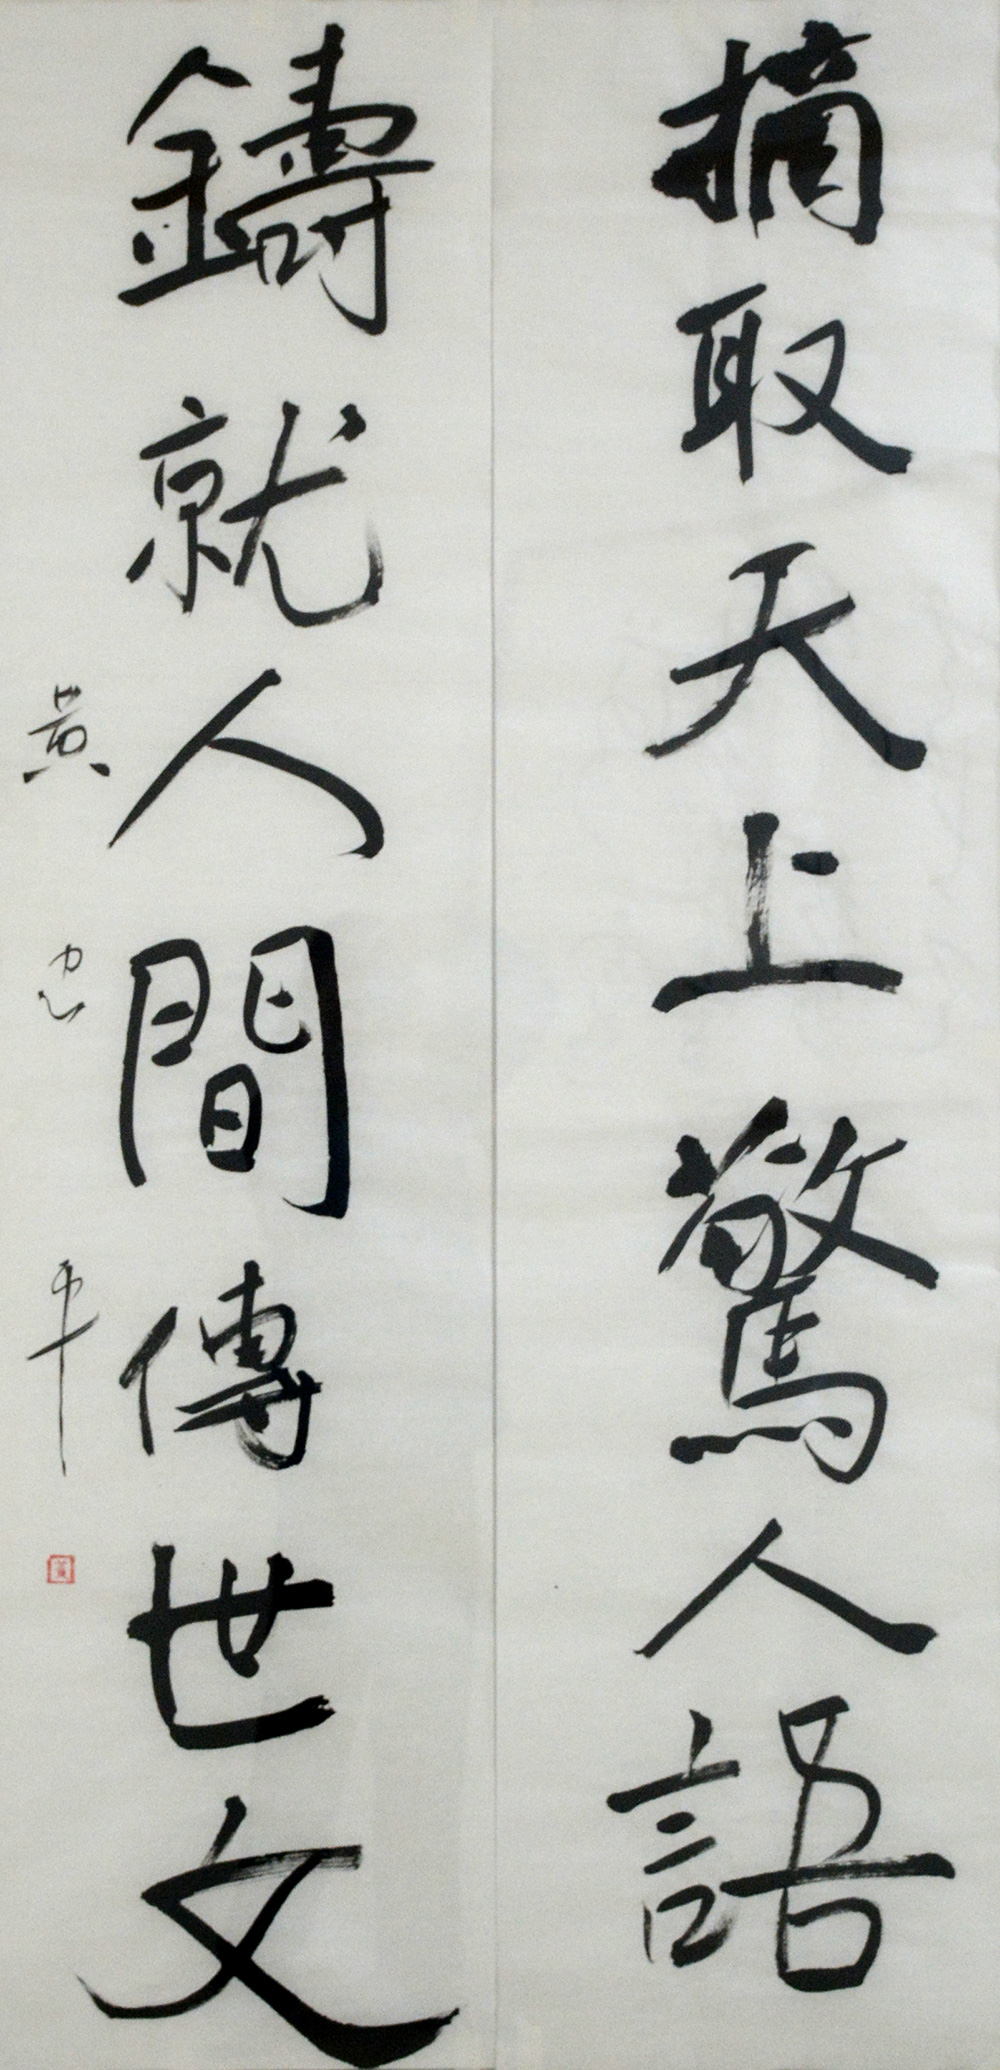 摘取天上驚人語
鑄就人間傳世文
黃
平